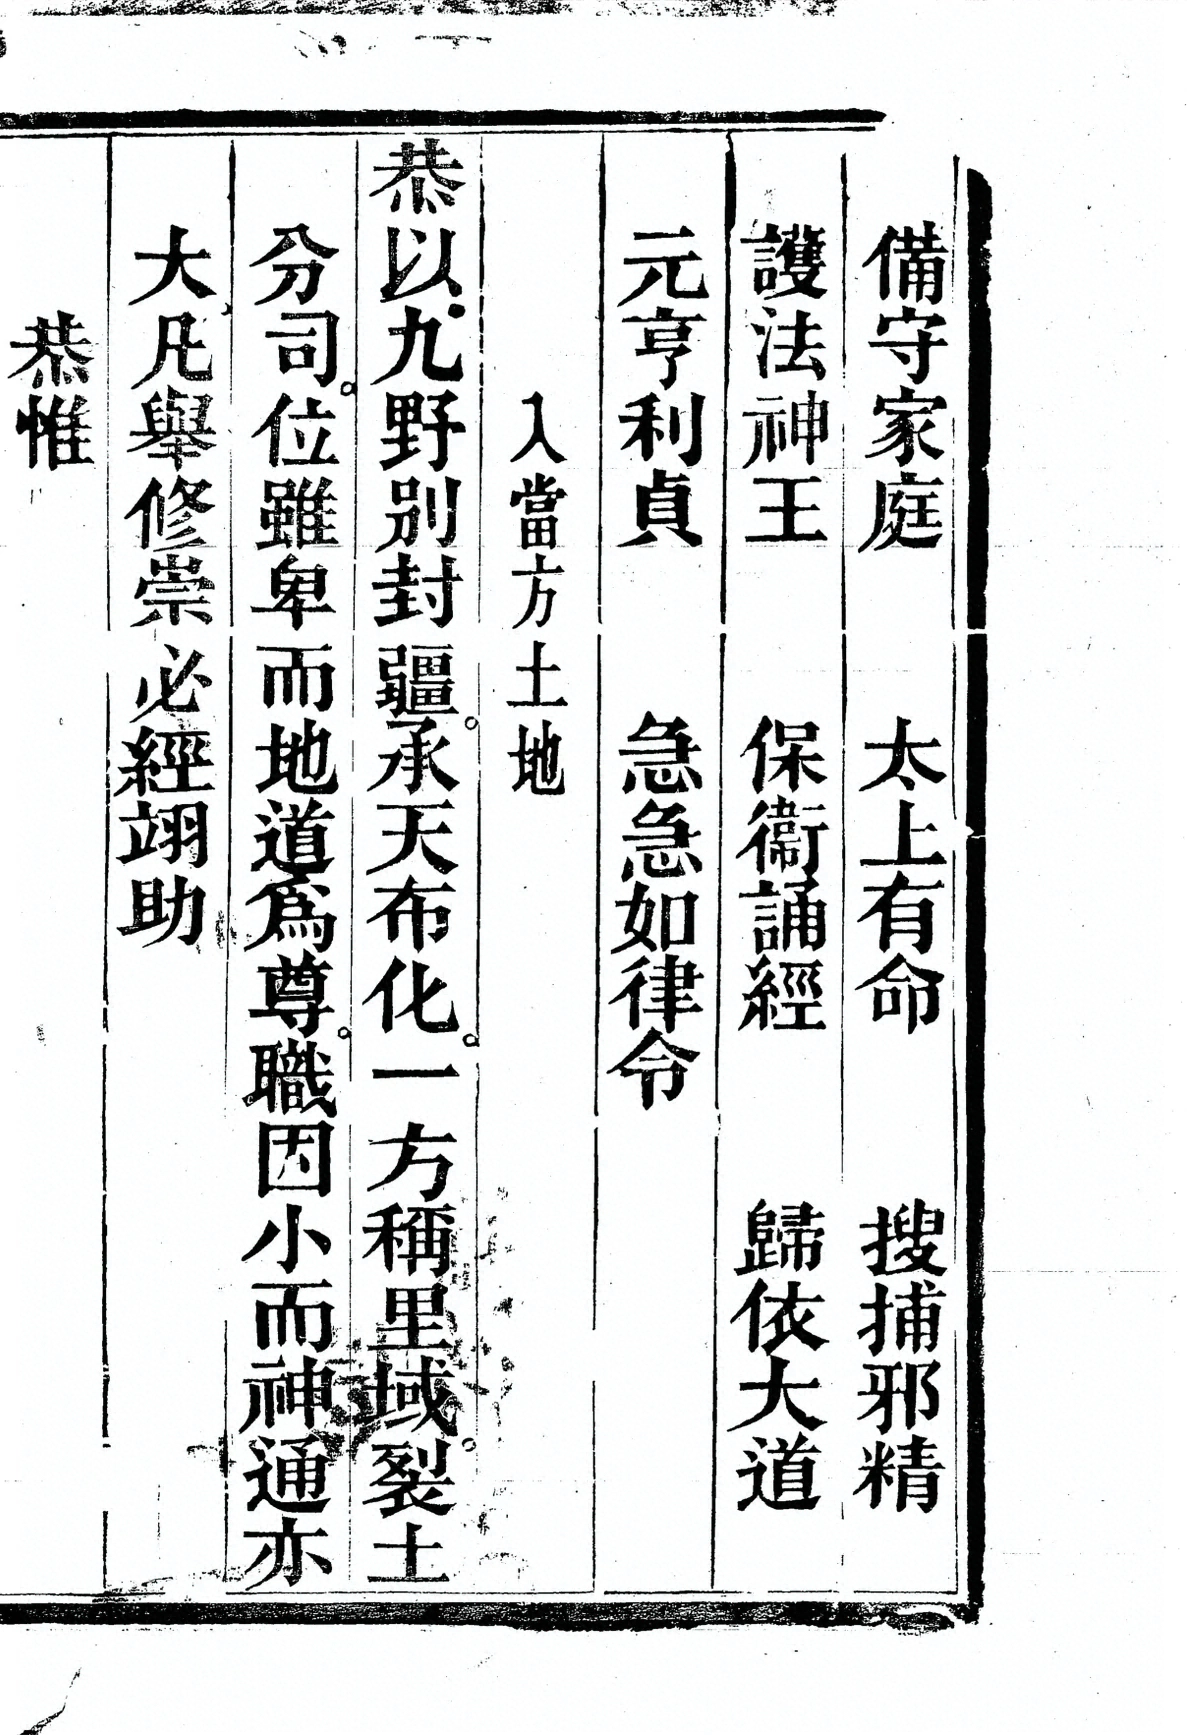 備守家庭　太上有命　搜捕邪精
護法神王　保衞誦經　歸依大道
元亨利貞　急急如律令
入當方土地
恭以九野别封疆。承天布化。一方稱里域。裂土
分司。位雖卑而地道爲尊。職因小而神通亦
大凡舉修崇必經翊助
恭惟